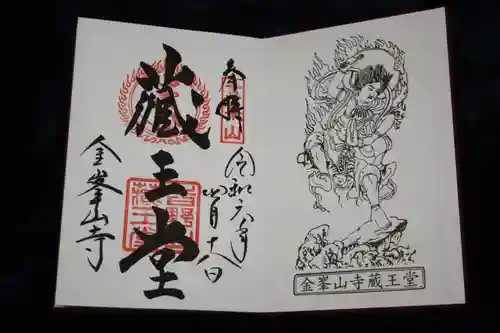 奉拝
令和六年
四月十八日
藏王堂
金峯山寺
金峯山寺蔵王堂